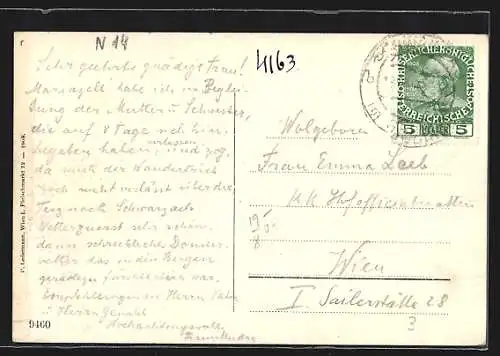 N 14
4163
Sehr geehrte gnädige Frau!
Mariazell habe ich in Beglei-
tung der Mutter u Schwester,
die auf 8 Tage sich hin
begaben haben, verlassen und zog
da mich der Wandertrieb
noch nicht verlässt über die
nach Schwarzach
Wetter zuerst sehr schön,
dann schreckliches Donner-
wetter das in den Bergen
geradezu fürchterlich war.
Empfehlungen an Herrn
u Herrn Gemahl
Hochachtungsvoll
P. Ledermann, Wien I., Fleischmarkt 12 — 1908.
9460
5 HELLER 5
Wolgeboren
Frau Emma Loeb
KK Hofofficientens
Wien
I. Seilerstätte 28
3